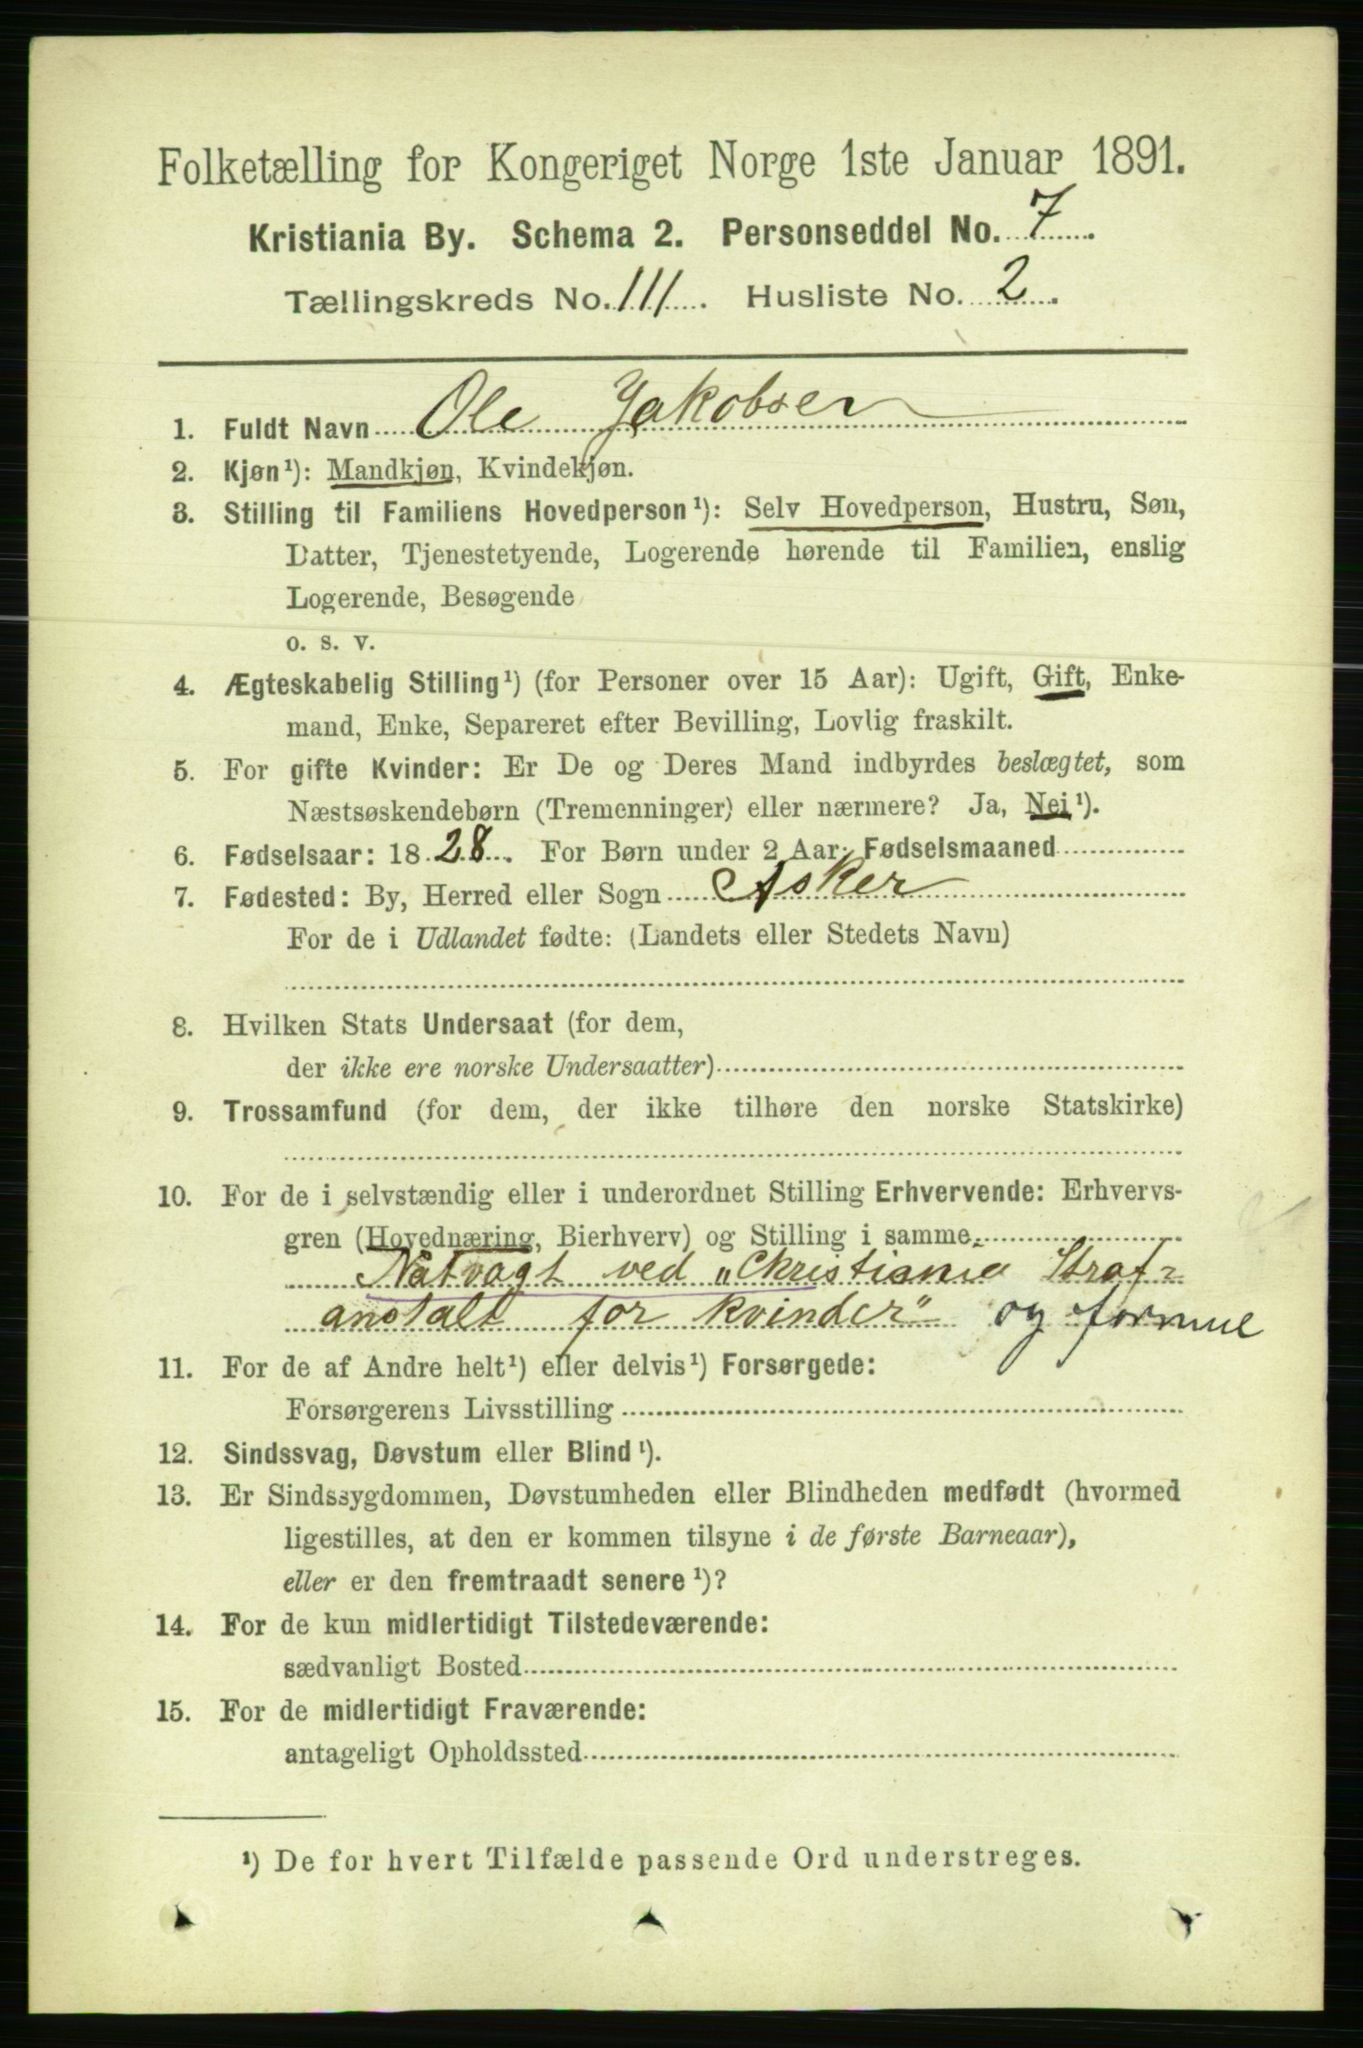 Folketælling for Kongeriget Norge 1ste Januar 1891.
Kristiania By. Schema 2. Personseddel No. 7
Tællingskreds No. 111. Husliste No. 2.
1. Fuldt Navn Ole Jakobsen
2. Kjøn¹): Mandkjøn, Kvindekjøn.
3. Stilling til Familiens Hovedperson¹): Selv Hovedperson, Hustru, Søn,
Datter, Tjenestetyende, Logerende hørende til Familien, enslig
Logerende, Besøgende
o. s. v.
4. Ægteskabelig Stilling¹) (for Personer over 15 Aar): Ugift, Gift, Enke-
mand, Enke, Separeret efter Bevilling, Lovlig fraskilt.
5. For gifte Kvinder: Er De og Deres Mand indbyrdes beslægtet, som
Næstsøskendebørn (Tremenninger) eller nærmere? Ja, Nei¹).
6. Fødselsaar: 1828. For Børn under 2 Aar: Fødselsmaaned
7. Fødested: By, Herred eller Sogn Asker
For de i Udlandet fødte: (Landets eller Stedets Navn)
8. Hvilken Stats Undersaat (for dem,
der ikke ere norske Undersaatter)
9. Trossamfund (for dem, der ikke tilhøre den norske Statskirke)
10. For de i selvstændig eller i underordnet Stilling Erhvervende: Erhvervs-
gren (Hovednæring, Bierhverv) og Stilling i samme.
Natvagt ved „Christiania Straf-
anstalt for Kvinder" og formue
11. For de af Andre helt¹) eller delvis¹) Forsørgede:
Forsørgerens Livsstilling
12. Sindssvag, Døvstum eller Blind¹).
13. Er Sindssygdommen, Døvstumheden eller Blindheden medfødt (hvormed
ligestilles, at den er kommen tilsyne i de første Barneaar),
eller er den fremtraadt senere¹)?
14. For de kun midlertidigt Tilstedeværende:
sædvanligt Bosted
15. For de midlertidigt Fraværende:
antageligt Opholdssted
¹) De for hvert Tilfælde passende Ord understreges.